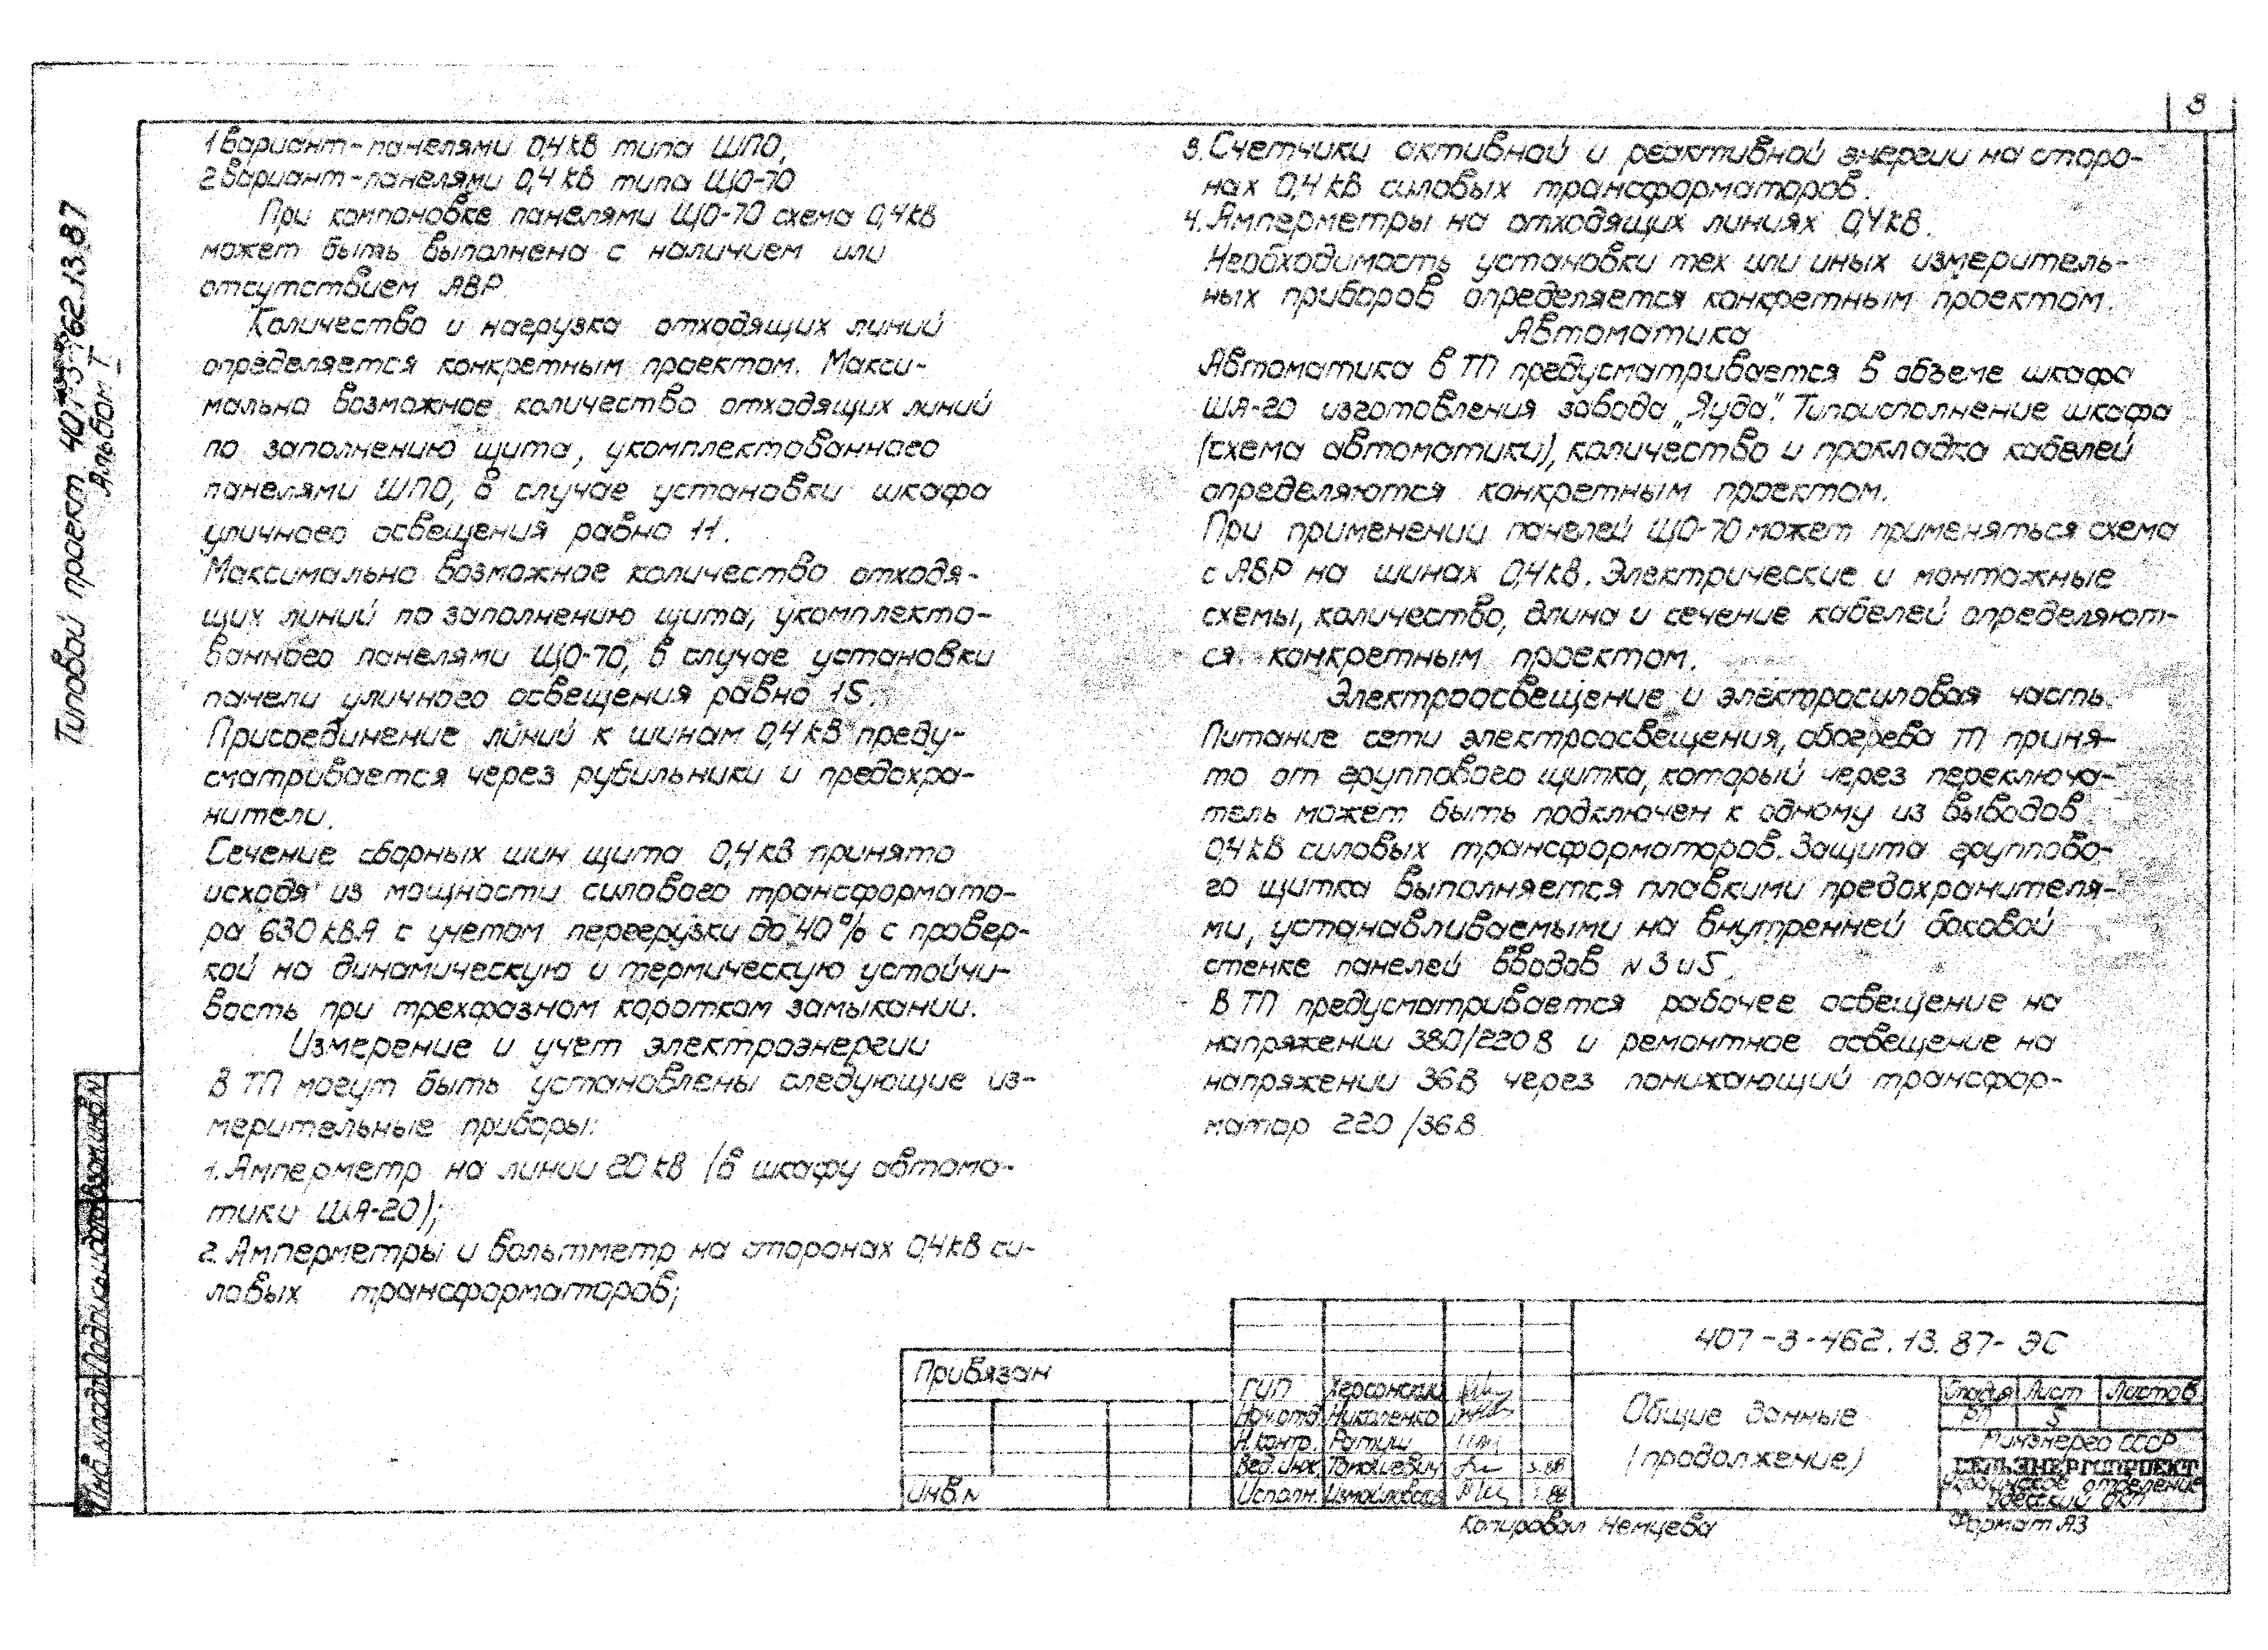 8
Типовой проект 407-3-462.13.87
Альбом I
1 вариант - панелями 0,4кВ типа ШПО,
2 вариант - панелями 0,4 кВ типа ЩО-70
При компоновке панелями ЩО-70 схема 0,4кВ
может быть выполнена с наличием или
отсутствием АВР.
Количество и нагрузка отходящих линий
определяется конкретным проектом. Макси-
мально возможное количество отходящих линий
по заполнению щита, укомплектованного
панелями ШПО, в случае установки шкафа
уличного освещения равно 11.
Максимально возможное количество отходя-
щих линий по заполнению щита, укомплекто-
ванного панелями ЩО-70, в случае установки
панели уличного освещения равно 15.
Присоединение линий к шинам 0,4кВ преду-
сматривается через рубильники и предохра-
нители.
Сечение сборных шин щита 0,4кВ принято
исходя из мощности силового трансформато-
ра 630 кВА с учетом перегрузки до 40% с провер-
кой на динамическую и термическую устойчи-
вость при трехфазном коротком замыкании.
Измерение и учет электроэнергии
В ТП могут быть установлены следующие из-
мерительные приборы:
1. Амперметр на линии 20 кВ (в шкафу автома-
тики ША-20);
2. Амперметры и вольтметр на сторонах 0,4кВ си-
ловых трансформаторов;
3. Счетчики активной и реактивной энергии на сторо-
нах 0,4 кВ силовых трансформаторов.
4. Амперметры на отходящих линиях 0,4кВ.
Необходимость установки тех или иных измеритель-
ных приборов определяется конкретным проектом.
Автоматика
Автоматика в ТП предусматривается в объеме шкафа
ША-20 изготовления завода „Яуда". Типоисполнение шкафа
(схема автоматики), количество и прокладка кабелей
определяются конкретным проектом.
При применении панелей ЩО-70 может применяться схема
с АВР на шинах 0,4кВ. Электрические и монтажные
схемы, количество, длина и сечение кабелей определяют-
ся конкретным проектом.
Электроосвещение и электросиловая часть.
Питание сети электроосвещения, обогрева ТП приня-
то от группового щитка, который через переключа-
тель может быть подключен к одному из выводов
0,4кВ силовых трансформаторов. Защита группово-
го щитка выполняется плавкими предохранителя-
ми, устанавливаемыми на внутренней боковой
стенке панелей вводов N 3 и 5.
В ТП предусматривается рабочее освещение на
напряжении 380/220В и ремонтное освещение на
напряжении 36В через понижающий трансфор-
матор 220/36В
Инв. N подл. Подпись и дата Взам. инв. N
Привязан
Инв. N
407-3-462.13.87-ЭС
ГИП Херсонский
Нач. отд. Николенко
Н. контр. Ратуш
Вед. инж. Томашевич 3.88
Исполн. Измайловская
Общие данные
(продолжение)
Стадия Лист Листов
РП 5
Минэнерго СССР
СЕЛЬЭНЕРГОПРОЕКТ
Украинское отделение
Одесский ОКП
Копировал Немцева
Формат А3